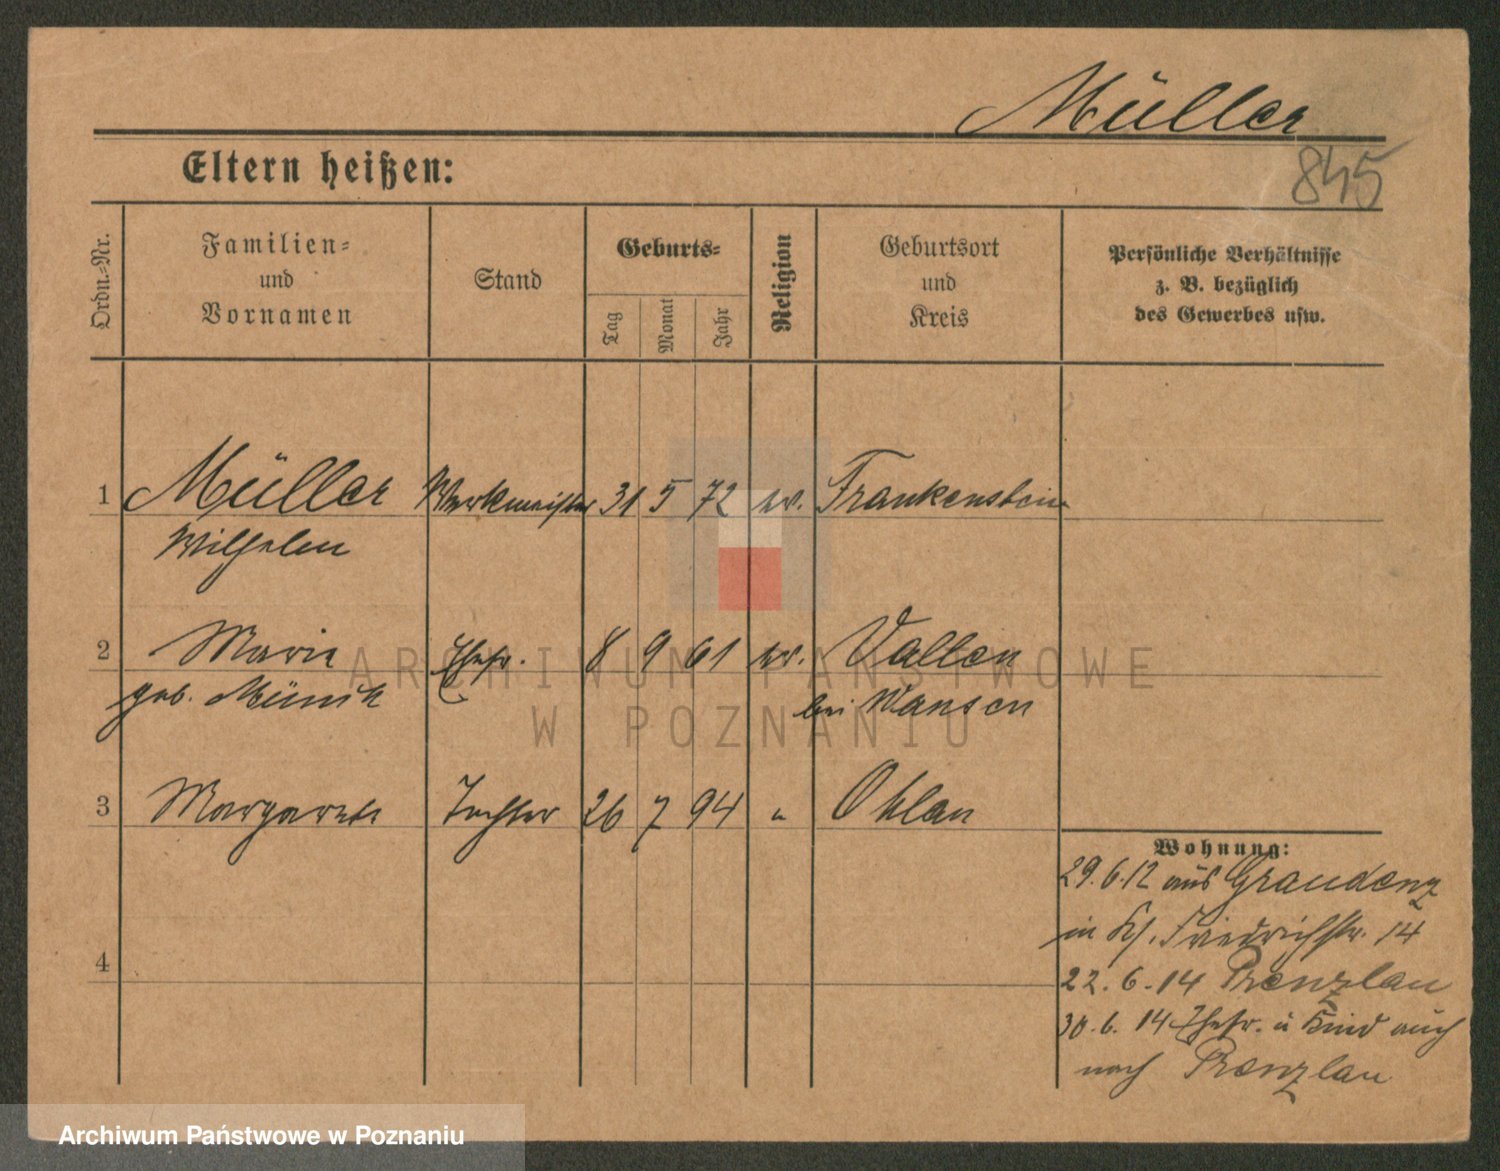 Müller
845
Eltern heißen:
Ordn.-Nr.
Familien-
und
Vornamen
Stand
Geburts-
Tag
Monat
Jahr
Religion
Geburtsort
und
Kreis
Persönliche Verhältnisse
z. B. bezüglich
des Gewerbes usw.
1 Müller Werkmeister 31 5 72 ev. Frankenstein
Wilhelm
2 Marie Ehefr. 8 9 61 ev.
geb. bei Wansen
3 Margarete Tochter 26 7 94 " Ohlau
4
Wohnung:
29.6.12 aus Graudenz
in Friedrichstr. 14
22.6.14 Prenzlau
30.6.14 Ehefr. u Kind auch
nach Prenzlau
ARCHIWUM PAŃSTWOWE
W POZNANIU
Archiwum Państwowe w Poznaniu